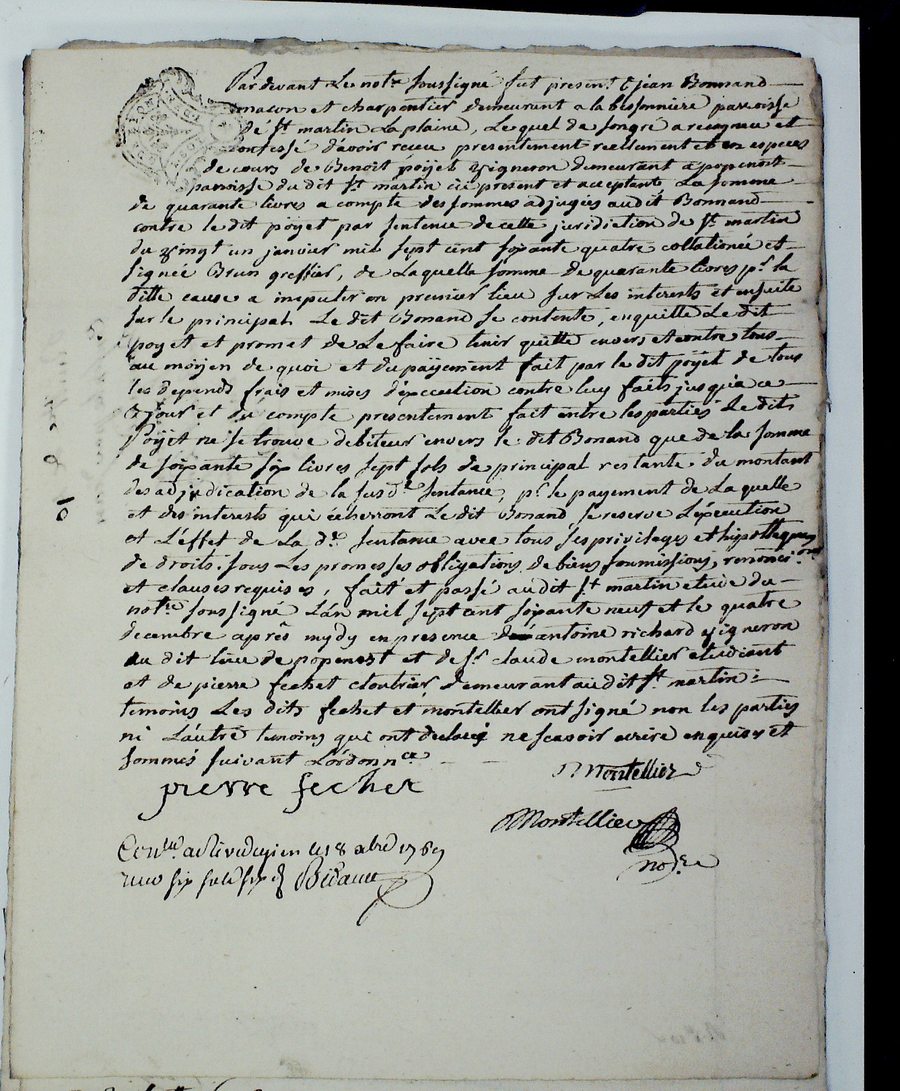 Pardevant Le not.re soussigné fut present jean Bonnand
macon et charpentier demeurant a la bissonnière parroisse
de St martin La plaine, Lequel de son gré a reconneu et
confessé d'avoir receu presentement reellement et en especes
de cours de Benoit poyet vigneron demeurant a popenost
parroisse du dit St martin ici present et acceptant La somme
de quarante livres a compte des sommes adjugées audit Bonnand
contre le dit poyet par sentence de cette juridiction de St martin
du vingt un janvier mil sept cent soixante quatre collationée et
signée Brun greffier, de Laquelle somme de quarante livres pr. la
ditte cause a imputer en premier lieu sur Les interests et ensuite
sur le principal Le dit Bonand se contente, en quitte Le dit
poyet et promet de Le faire tenir quitte envers et contre tous
au moyen de quoi et du payement fait par le dit poyet de tous
les depends frais et mises d'execution contre luy faits jusqu'a ce
jour et du compte presentement fait entre les parties Le dit
Poyet ne se trouve debiteur envers le dit Bonand que de la somme
de soixante six livres sept sols de principal restante du montant
des adjudication de la susd.e sentance, pr. le payement de Laquelle
et des interests qui écherront Le dit Bonand se reserve L'éxécution
et L'éffet de La d.e sentance avec tous ses privileges et hipotteques
de droits. sous Les promesses obligations de biens soumissions, renonci.ons
et clauses requises, fait et passé audit St martin etude du
not.re soussigné L'an mil sept cent soixante neuf et le quatre
decembre après mydy en presence de antoine richard vigneron
du dit lieu de popenost et de Sr. claude montellier etudiant
et de pierre fechet cloutrier demeurant audit St martin
temoins Les dits fechet et montellier ont signé non les parties
ni L'autre temoins qui ont declaré ne scavoir ecrire enquis et
sommés suivant L'ordonn.ce
Montellier
pierre fechet
Montellier
no.re
Con.lé a Rivedegier le 18 xbre 1769
recu six sols six d